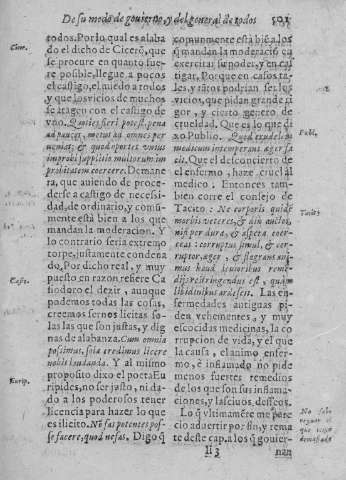 De su modo de gouierno, y del general de todos 501
todos. Por lo qual es alaba
do el dicho de Ciceró, que
se procure en quanto fue-
re posible, llegue a pocos
el castigo, el miedo a todos
y que los vicios de muchos
se atagen con el castigo de
vno. Quoties fieri potest, pena
ad paucos, metus ad omnes per
ueniat; & quod oportet vnius
improbi supplitio multorum im
probitatem coercere. Demane
ra, que auiendo de proce-
derse a castigo de necessi-
dad, de ordinario, y común
mente està bien a los que
mandan la moderacion. Y
lo contrario seria extremo
torpe, justamente condena
do. Por dicho real, y muy
puesto en razon refiere Ca
siodoro el dezir, aunque
podemos todas las cosas,
creemos sernos licitas so-
las las que son justas, y dig
nas de alabanza. Cum omnia
possimus, sola credimus licere
nobis laudanda. Y al mismo
proposito dixo el poeta Eu
ripides, no ser justo, ni da-
do a los poderosos tener
licencia para hazer lo que
es ilicito. Nō fas potentes pos-
se facere, quod nefas. Digo q̄
Cicer.
Casio.
Eurip.
comunmente està bié a los
q̄ mandan la moderació en
exercitar su poder, y en cas
tigar. Porque en casos ta-
les, y tātos podrian ser los
vicios, que pidan grande ri
gor, y cierto genero de
crueldad. Que es lo que di
xo Publio.
medicum intemperans æger fa
cit. Que el desconcierto de
el enfermo, haze cruel al
medico: Entonces tam-
bien corre el consejo de
Tacito: Ne corporis quidē
morbis veteres, & diu auctos,
nisi per dura, & aspera, coer-
ceas: corruptus simul, & cor-
ruptor, æger, & flagrans ani-
mus haud leuioribus reme-
dijs restringendus est, quàm
libidinibus ardescit. Las en-
fermedades antiguas pi-
den vehementes, y muy
escocidas medicinas, la co
rrupcion de vida, y el que
la causa, el animo enfer-
mo, è inflamado no pide
menos fuertes remedios
de los que son sus inflama-
ciones, y lasciuos desseos.
Lo q̄ vltimaméte me pare
cio aduertir por fin, y rema
te deste cap. a los q̄ gouier-
Publ.
Tacit.
Ii 3
nan